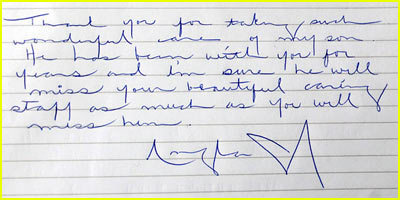 Thank you for taking such
wonderful care of my son
He has been with you for
years and I'm sure he will
miss your beautiful caring
staff as much as you will
miss him.